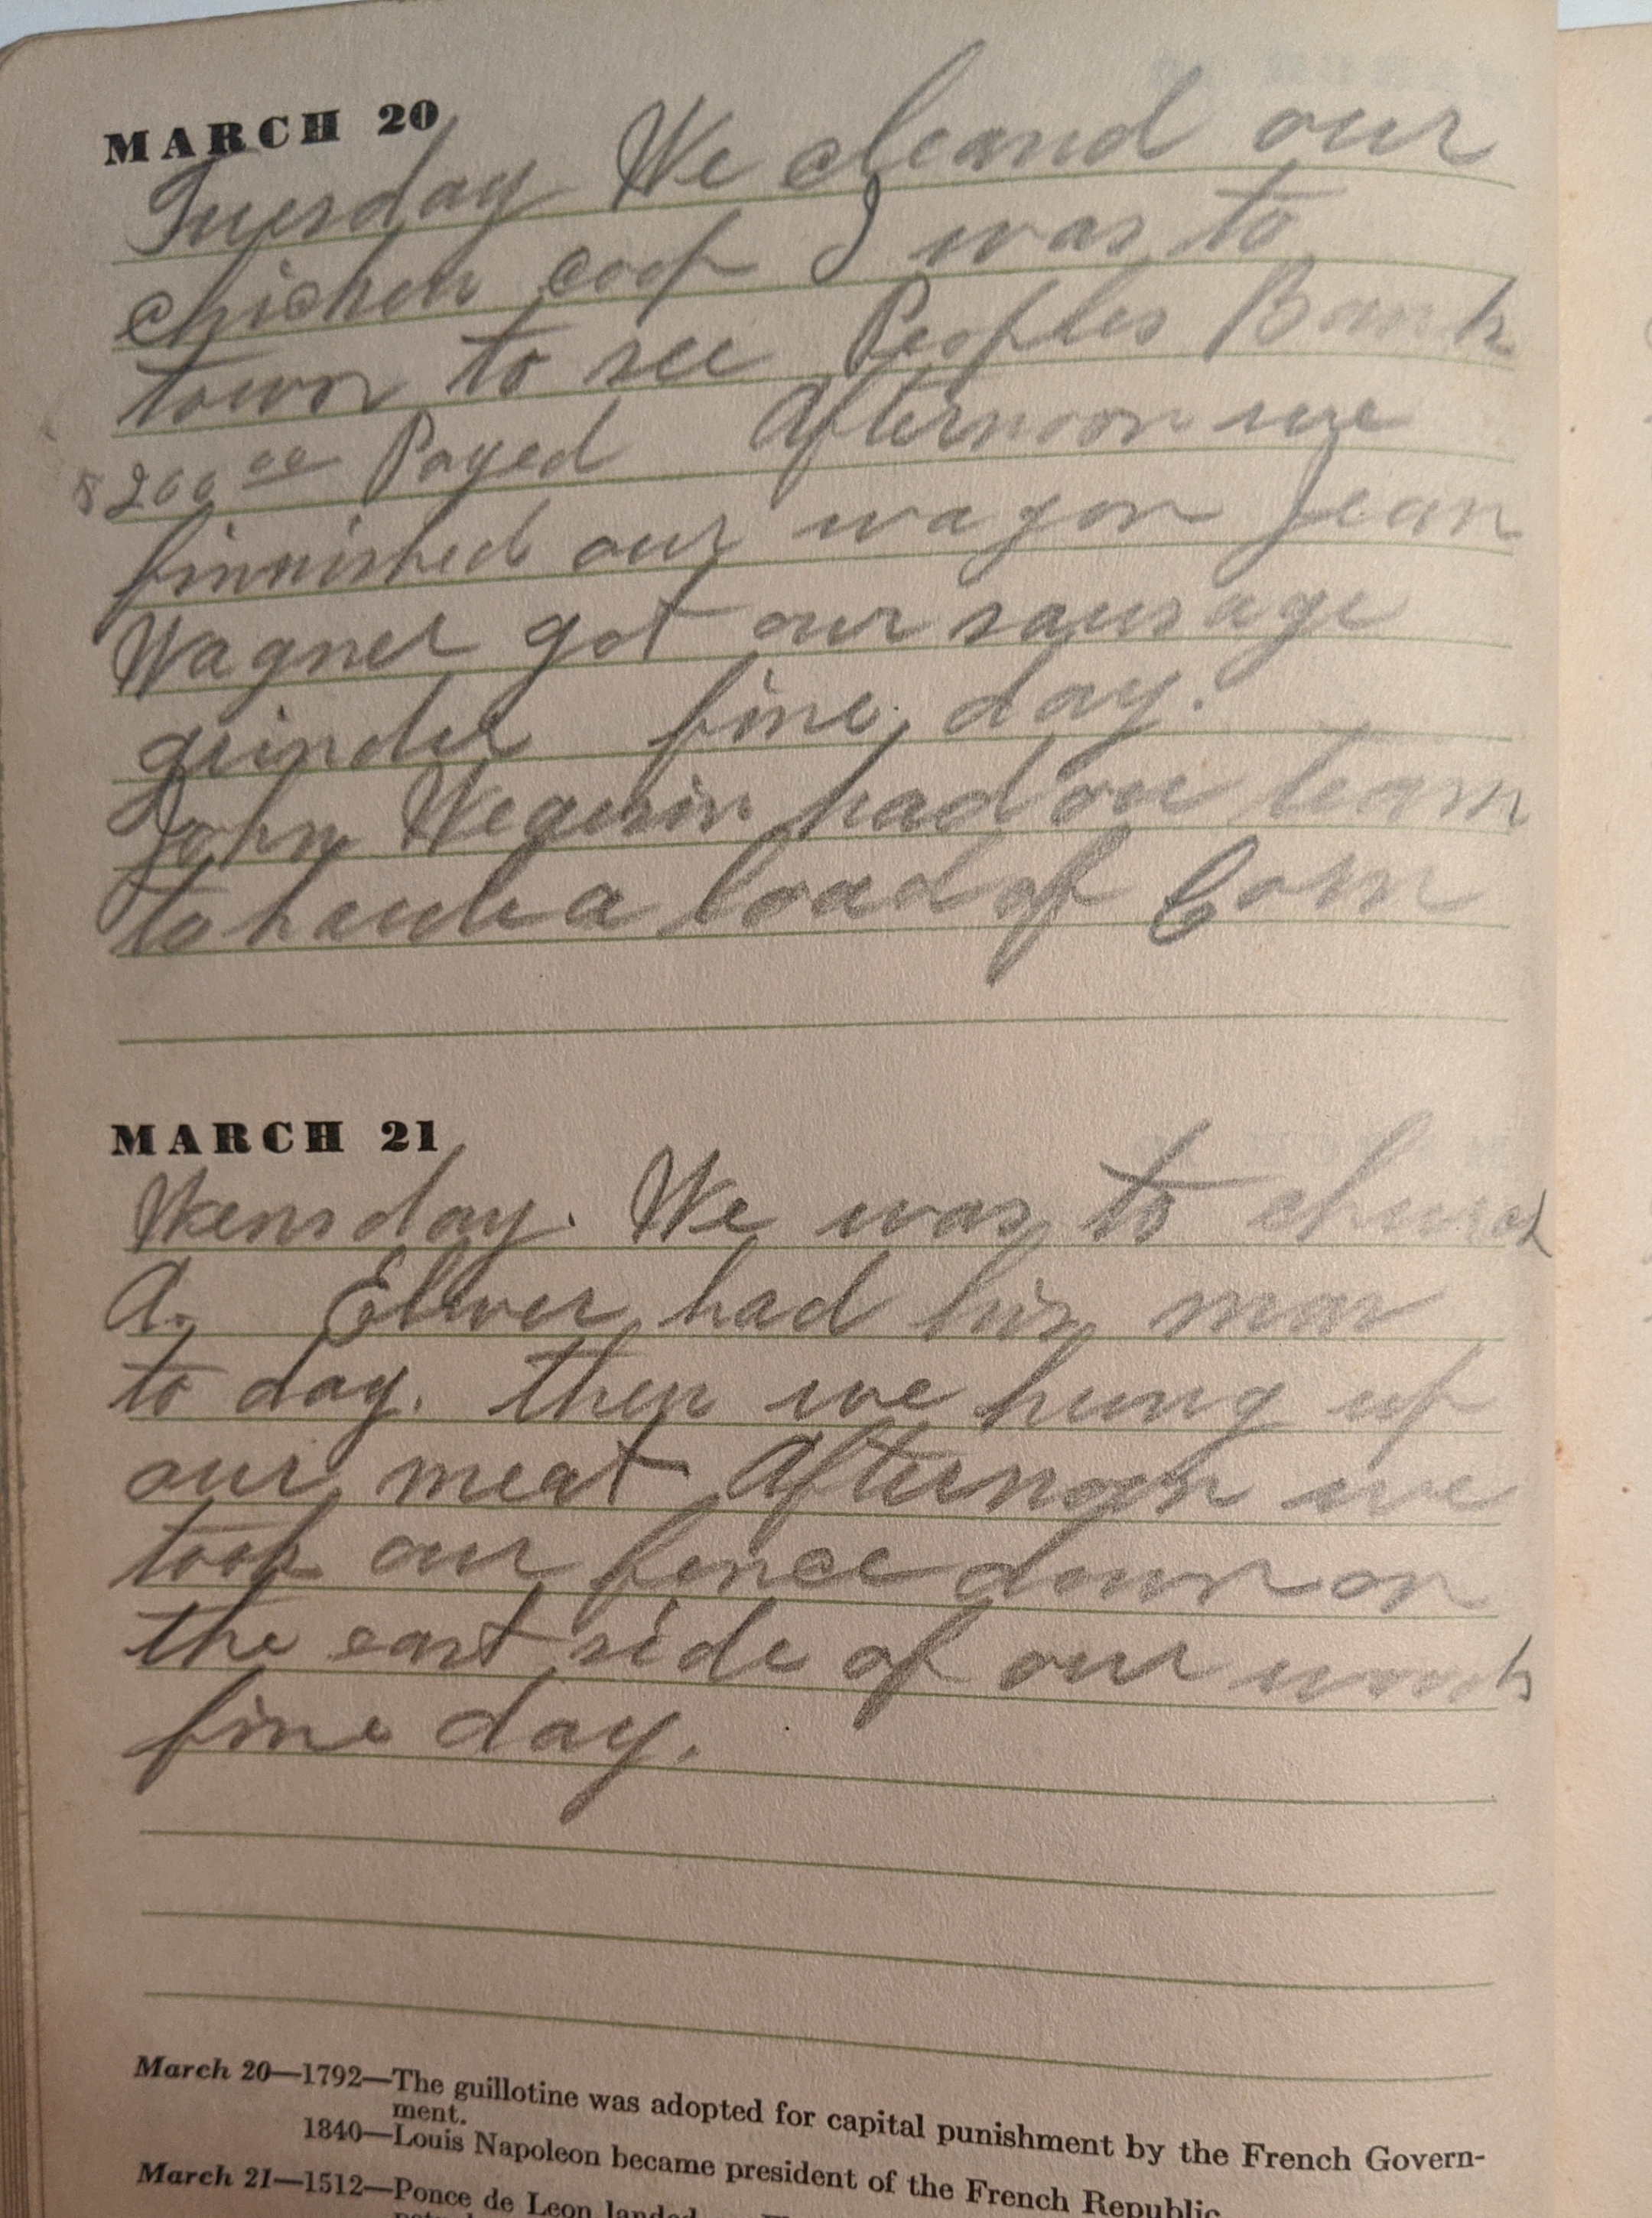 MARCH 20
Tuesday We cleand our
chicken coop I was to
town to see Peoples Bank
$200 00 Payed Afternoon we
finnished our wagon Jean
Wagner got our sausage
grinder fine day.
John had our team
to haul a load of Corn
MARCH 21
Wensday. We was to church
A. had his
to day. then we hung up
our meat Afternoon we
took our fence down on
the east side of our woods
fine day.
March 20—1792—The guillotine was adopted for capital punishment by the French Govern-
ment.
1840—Louis Napoleon became president of the French Republic.
March 21—1512—Ponce de Leon landed